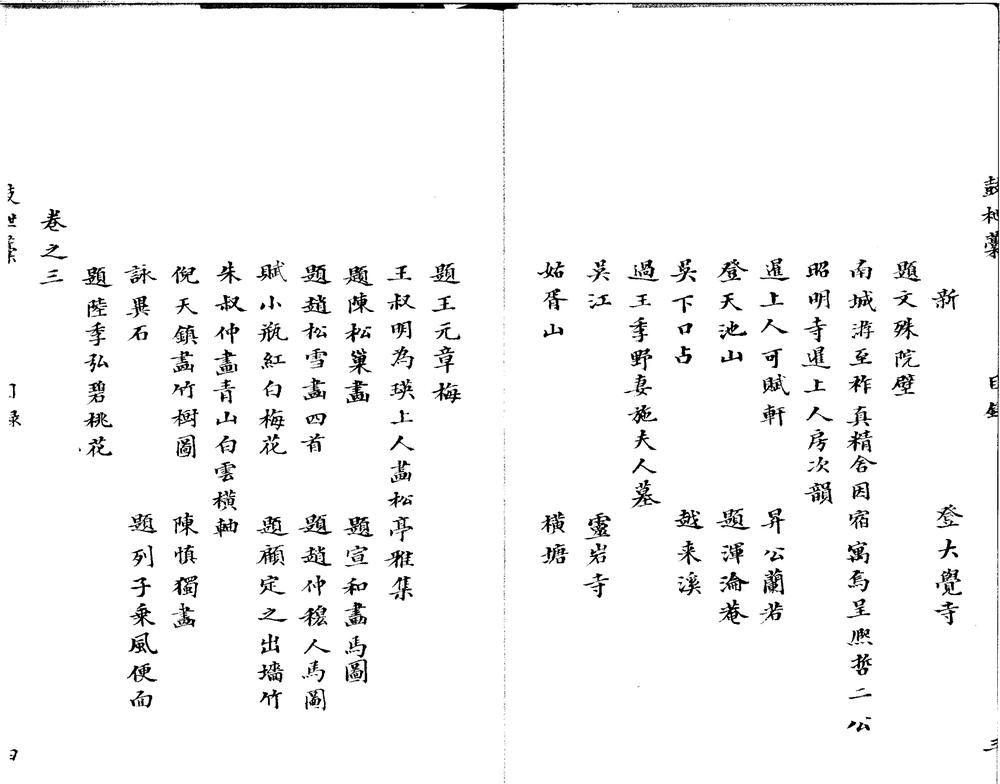 鼓枻藳 目錄 三
新 登大覺寺
題文殊院壁
南城游至祚真精舍因宿寓焉呈熙哲二公
昭明寺暹上人房次韻
暹上人可賦軒 昇公蘭若
登天池山 題渾淪菴
吳下口占 越来溪
過王季野妻施夫人墓
吳江 靈岩寺
姑胥山 橫塘
題王元章梅
王叔明為瑛上人畵松亭雅集
題陳松巢畵 題宣和畵馬圖
題趙松雪畵四首 題趙仲穆人馬圖
賦小瓶紅白梅花 題顧定之出墻竹
朱叔仲畵青山白雲橫軸
倪天鎮畵竹樹圖 陳慎獨畵
詠異石 題列子乘風便面
題陸季弘碧桃花
卷之三